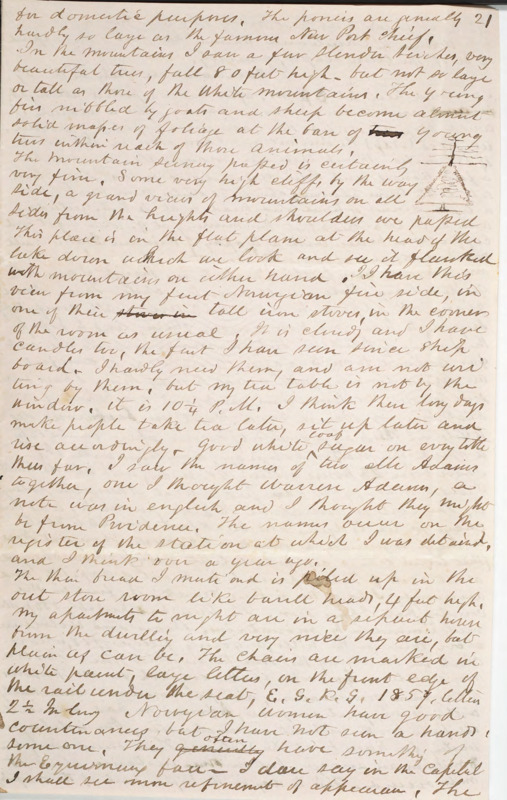 21
for domestic purposes. The ponies are generally
hardly so large as the famous New Port thief.
In the mountains I saw a few slender birches, very
beautiful trees, full 80 feet high - but not so large
or tall as those of the White mountains. The young
firs nibbled by goats and sheep become almost
solid masses of foliage at the base of young
trees within reach of those animals.
The mountain scenery passed is certainly
very fine. Some very high cliffs by the way
side, a grand views of mountains on all
sides from the heights and shoulders we passed
This place is in the flat plane at the head of the
lake down which we look and see it flanked
with mountains on either hand. I have this
view from my first Norwegian fire side, in
one of their tall iron stoves, in the corner
of the room as usual. It is cloudy and I have
candles too, the first I have seen since ship
board. I hardly need them, and am not wri
ting by them. but my tea table is not by the
window. it is 10¼ P.M. I think these long days
make people take tea later, sit up later and
rise accordingly. Good white loaf sugar on every table
thus far. I saw the names of two Adams
together, one I thought Warren Adams, a
note was in english and I thought they might
be from Providence. The names occur on the
register of the station at which I was detained,
and I think over a year ago.
The thin bread I mentioned is piled up in the
out store room like barell heads, 4 feet high.
My apartments to night are in a separate house
from the dwelling and very nice they are, but
plain as can be. The chairs are marked in
white paint, large letters, on the front edge of
the rail under the seat, E. G. R. G. 1857. letters
2½ In long Norwegian women have good
countenances but I have not seen a hand
some one. They often have something of
the Esquimaux face - I dare say in the Capital
I shall see more refinement of appearance. The